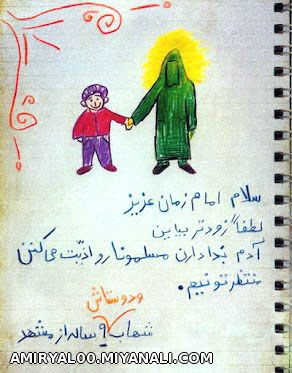 سلام امام زمان عزیز
لطفاً زودتر بیاین
آدم بدا دارن مسلمونا رو اذیت می کنن
منتظرتونیم.
و دوستاش
شهاب ۹ ساله از مشهد
AMIRYAL00.MIYANALI.COM